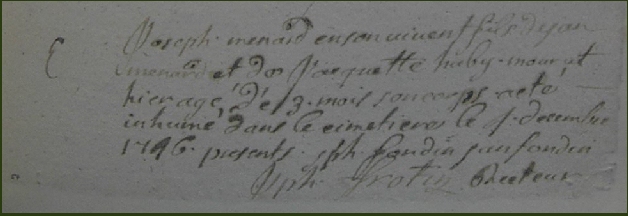 Joseph menard en son vivent fils de jan
menard et do Jacquette huby mourut
hier agé de 3 mois son corps a eté
inhumé dans le cimetiere le 4 decembre
1746 presents jph fondin jan fondin
Jph Frotin Recteur